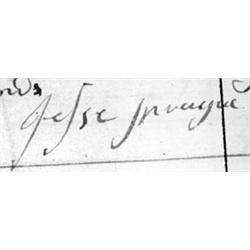 Jesse Sprague